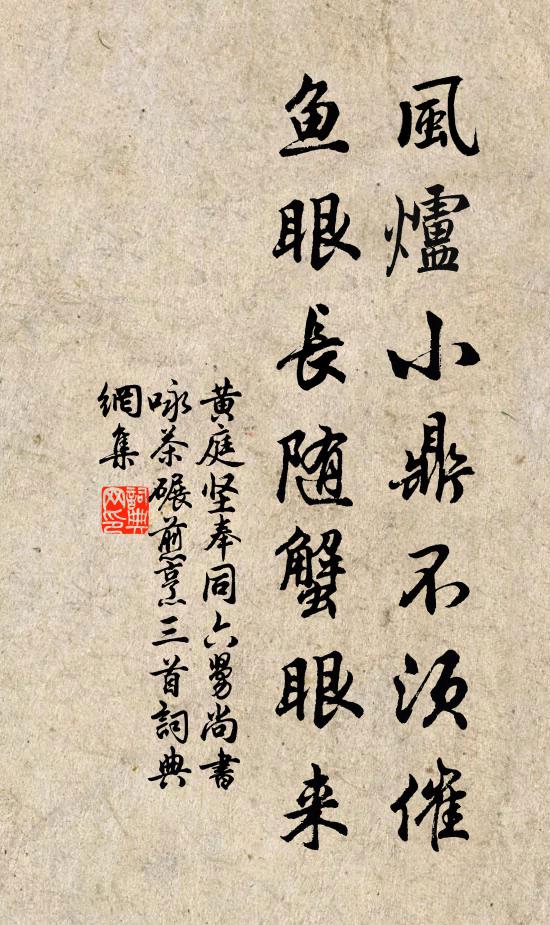 風爐小鼎不須催
鱼眼長随蟹眼来
黄庭坚奉同六舅尚書
咏茶碾煎烹三首詞典
網集
詞典
网印